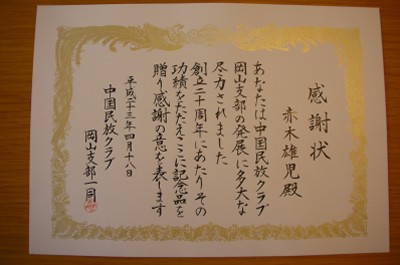 感謝状
赤木雄児殿
あなたは中国民放クラブ
岡山支部の発展に多大な
尽力されました
創立二十周年にあたりその
功績をたたえここに記念品を
贈り感謝の意を表します
平成二十三年四月十八日
中国民放クラブ
岡山支部一同